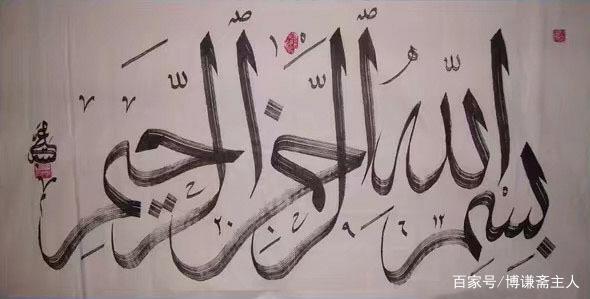 بسم الله الرحمن الرحيم
百家号/博谦斋主人